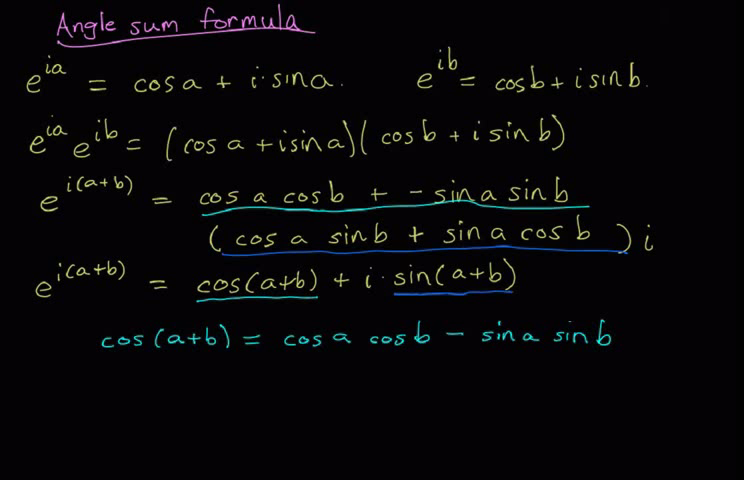 Angle sum formula
e^{ia} = cos a + i·sin a. e^{ib} = cos b + i sin b.
e^{ia} e^{ib} = (cos a + i sin a)(cos b + i sin b)
e^{i(a+b)} = cos a cos b + - sin a sin b
(cos a sin b + sin a cos b) i
e^{i(a+b)} = cos(a+b) + i· sin(a+b)
cos(a+b) = cos a cos b - sin a sin b